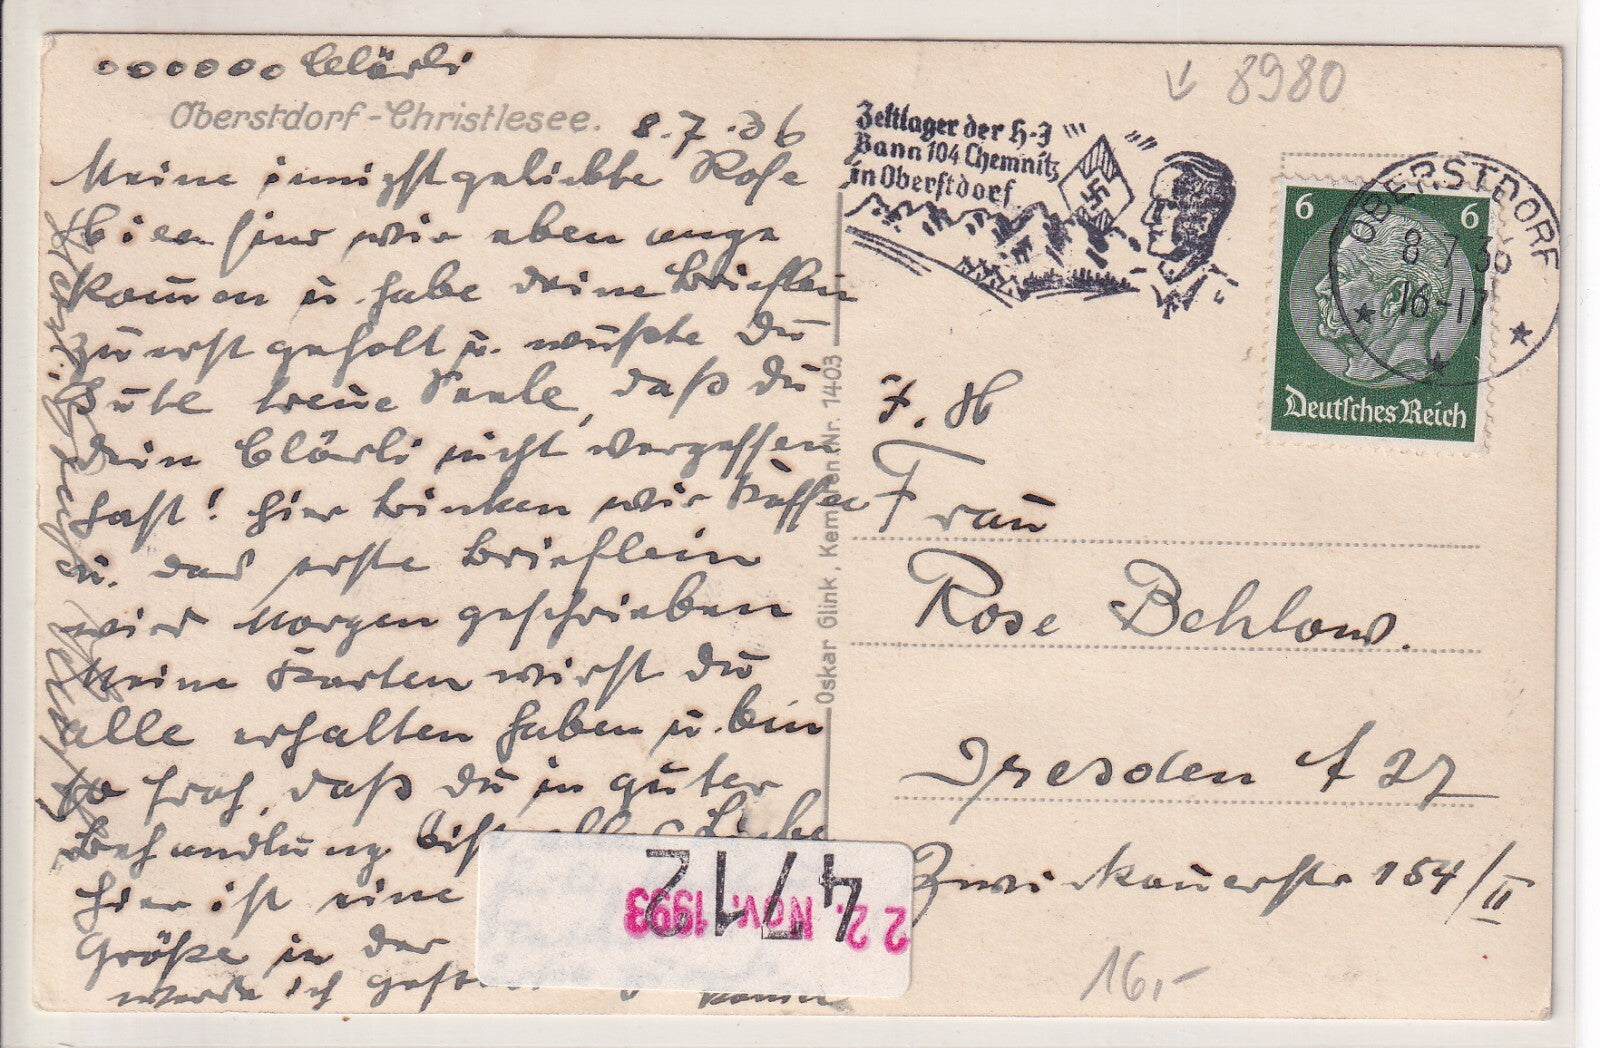 oooooo Clärli
Oberstdorf-Christlesee.
8.7.36
Meine innigst geliebte Rose
hier sind wir eben ange
kommen u. habe deine Brieflein
zuerst geholt u. wußte Du
Gute treue Seele, daß du
dein Clärli nicht vergessen
hast! hier trinken wir Kaffee
u. das erste Brieflein
wird Morgen geschrieben
Meine Karten wirst du
alle erhalten haben u. bin
so froh, daß du in guter
Behandlung bist Liebe
hier ist eine
Größe in der
werde ich
Zeltlager der H-J
Bann 104 Chemnitz
in Oberstdorf
Oskar Glink, Kempten. Nr. 1403
8980
6 6
Deutsches Reich
OBERSTDORF
8.7.36
16-17
Frau
Rose Behlow.
Dresden A 27
Zwickauerstr 154/II
4712
22. Nov. 1993
16,-